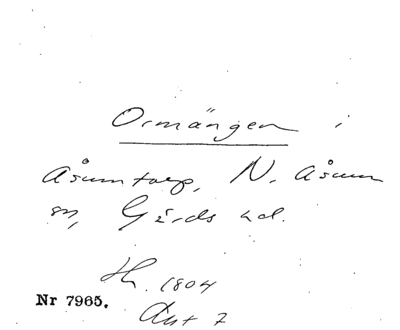 Ormängen i
Åsumtorp, N. Åsum
sn, Gärds hd.
Hr. 1804
Nr 7965.
Akt 7